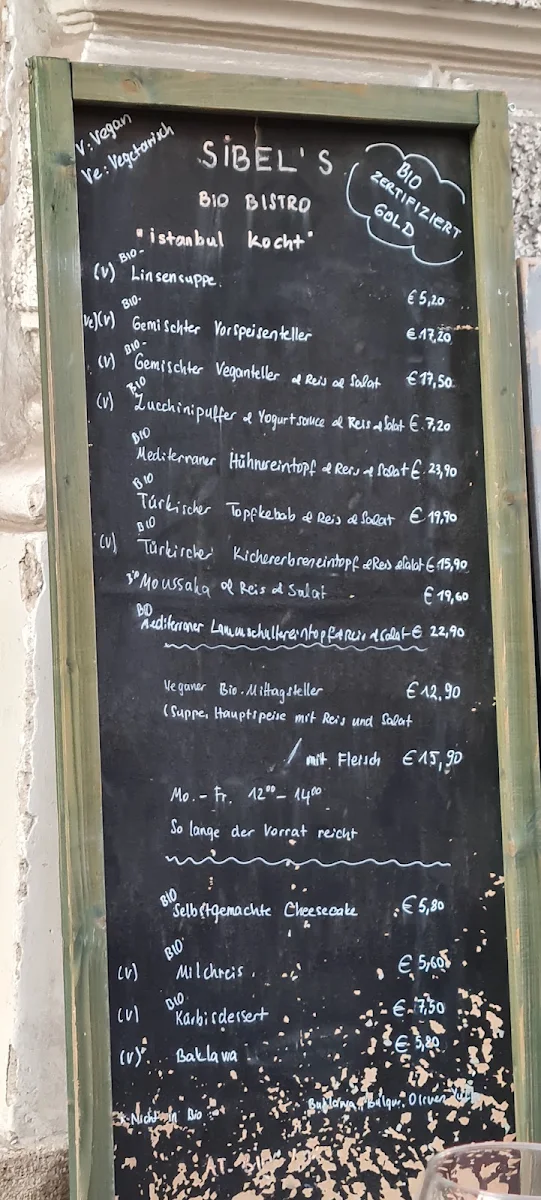 V: Vegan
Ve: Vegetarisch
SİBEL'S
BIO BISTRO
"istanbul kocht"
BIO ZERTIFIZIERT GOLD
BIO-
(V) Linsensuppe € 5,20
BIO-
Ve)(V) Gemischter Vorspeisenteller € 17,20
BIO-
(V) Gemischter Veganteller & Reis & Salat € 17,50
BIO
(V) Zucchinipuffer & Yogurtsauce & Reis & Salat € 7,20
BIO
Mediterraner Hühnereintopf & Reis & Salat € 23,90
BIO
Türkischer Topfkebab & Reis & Salat € 19,90
BIO
(V) Türkischer Kichererbseneintopf & Reis & Salat € 15,90
BIO Moussaka & Reis & Salat € 19,60
BIO
Mediterraner Lammschultereintopf & Reis & Salat € 22,90
Veganer Bio-Mittagsteller € 12,90
(Suppe, Hauptspeise mit Reis und Salat
/ mit Fleisch € 15,90
Mo. - Fr. 12⁰⁰ - 14⁰⁰
So lange der Vorrat reicht
BIO
Selbstgemachte Cheesecake € 5,80
BIO
(V) Milchreis € 5,60
BIO
(V) Kürbisdessert € 7,50
(V)* Baklawa € 5,80
* Nicht in Bio Baklawa, Bulgur, Oliven